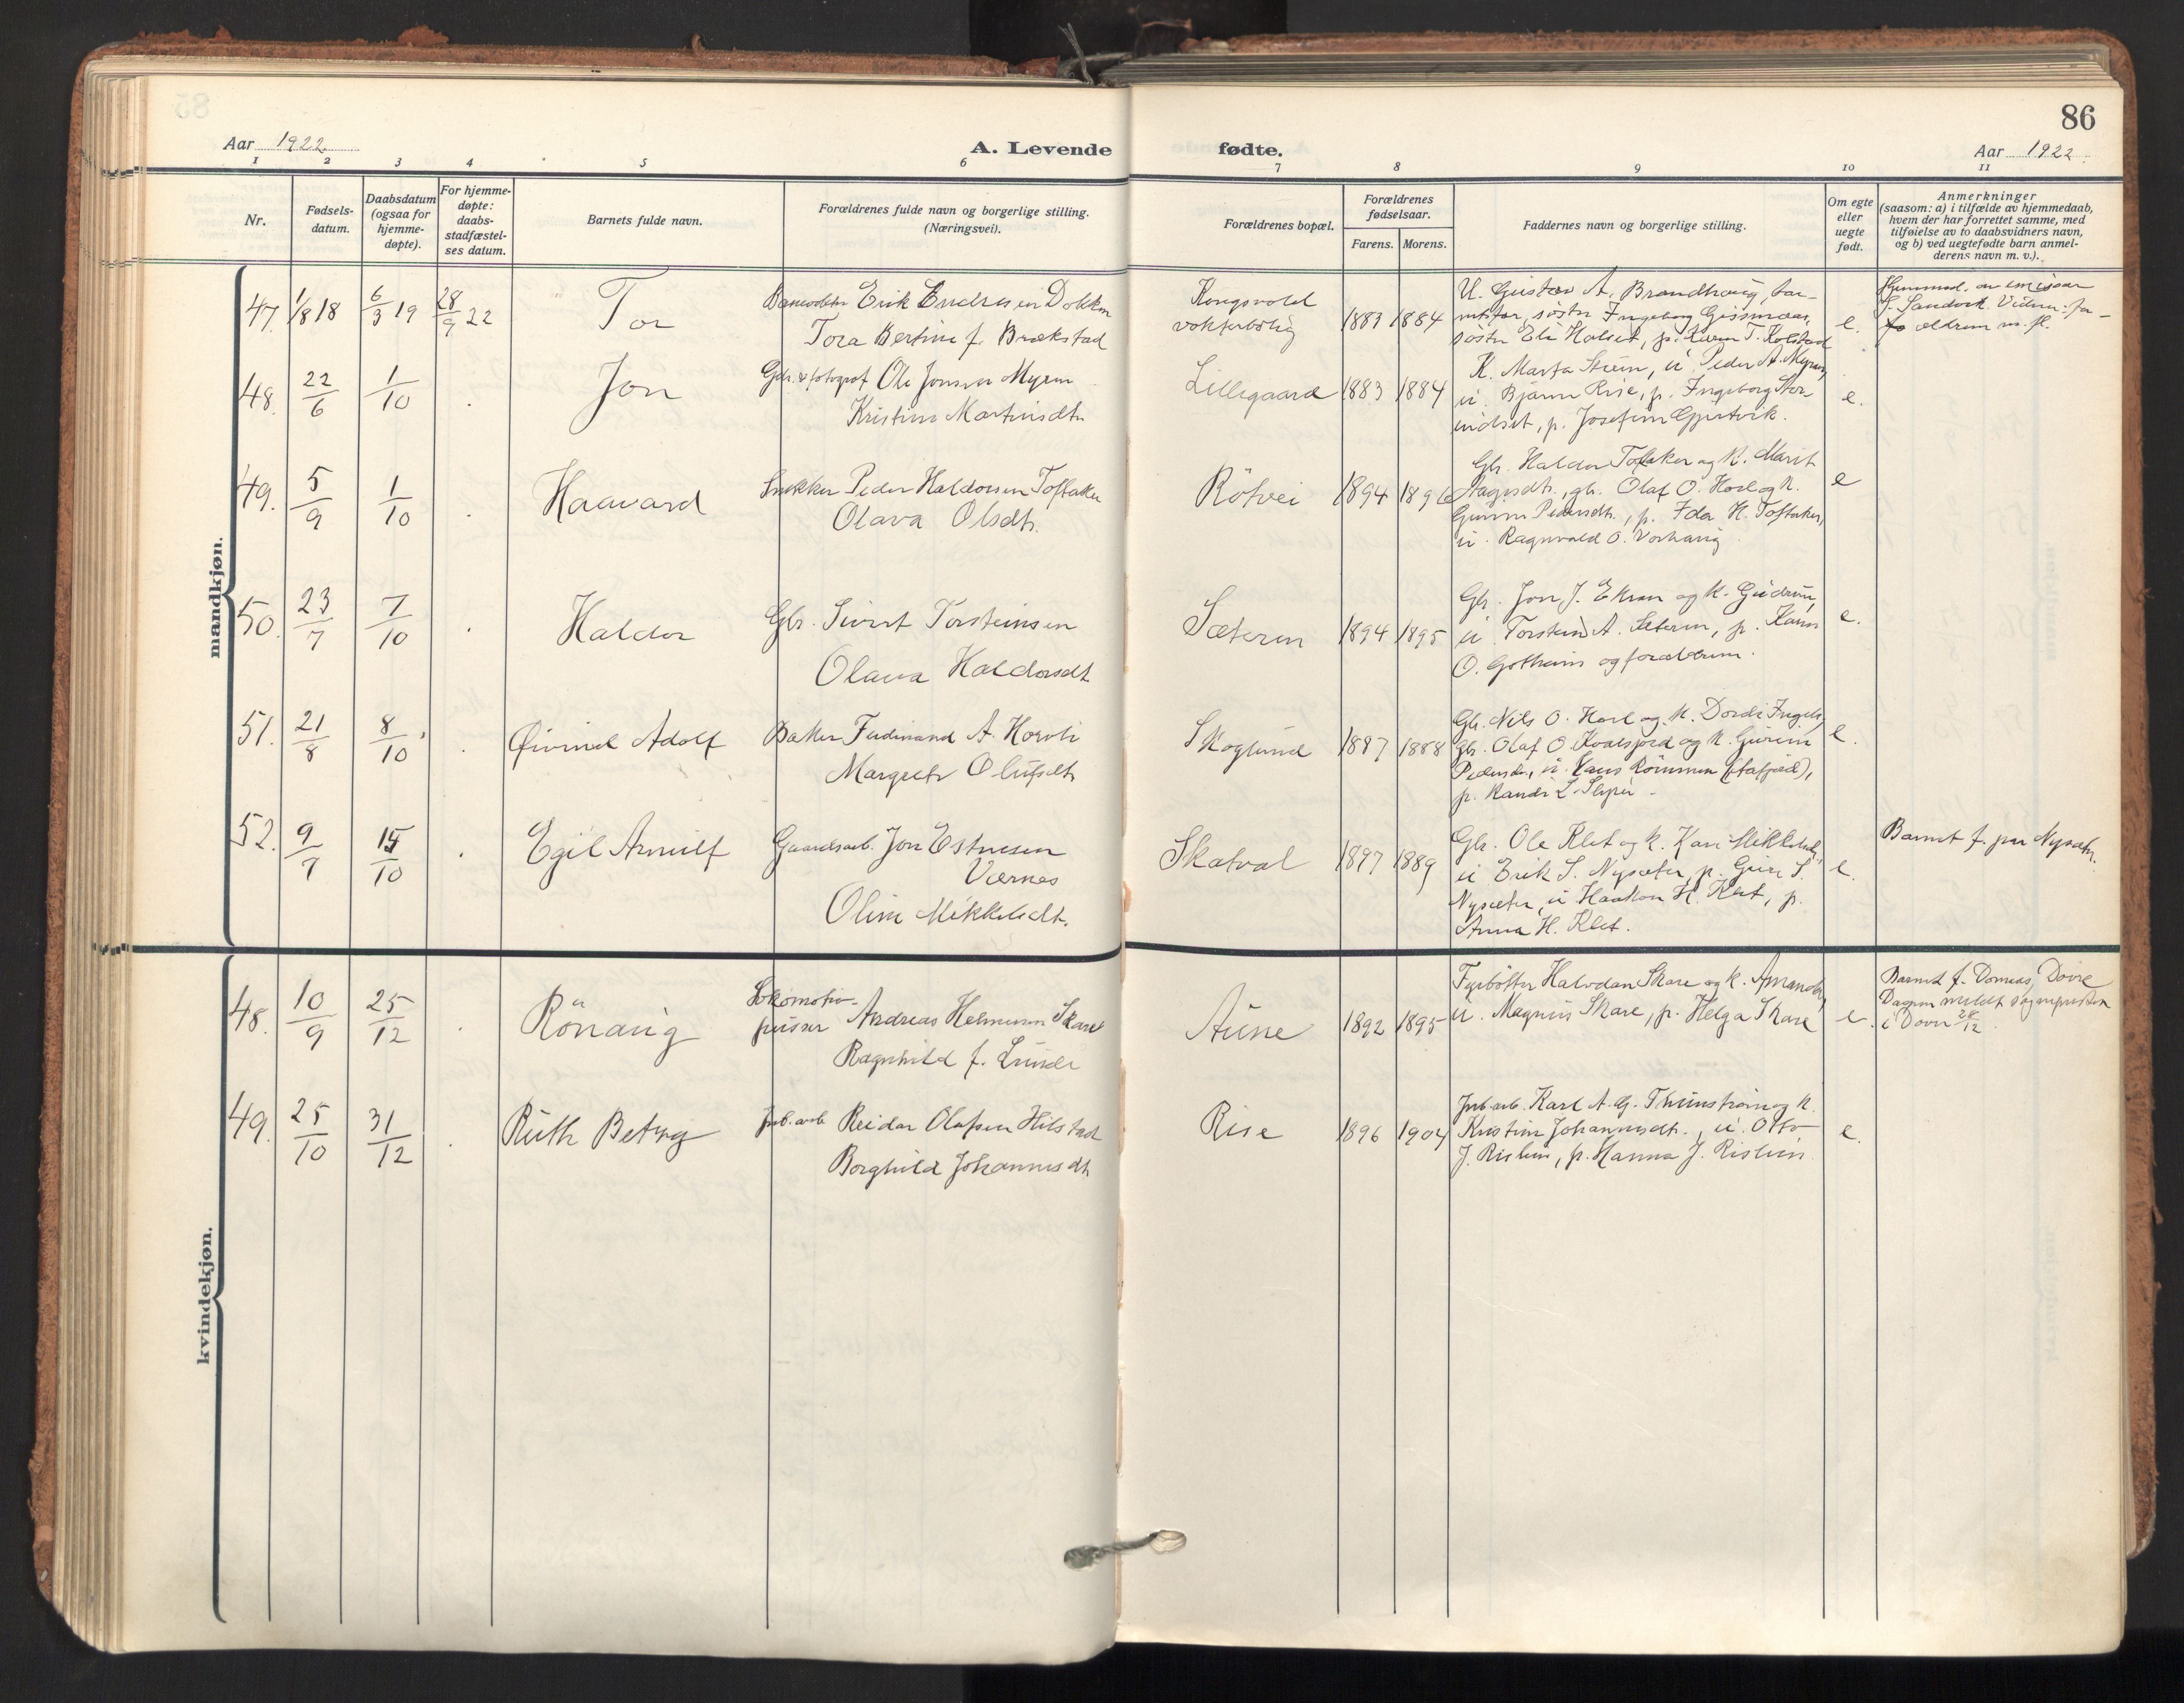 86
Aar 1922.
A. Levende
fødte.
Aar 1922.
1 2 3 4 5 6 7 8 9 10 11
Nr.
Fødsels-
datum.
Daabsdatum
(ogsaa for
hjemme-
døpte).
For hjemme-
døpte:
daabs-
stadfæstel-
ses datum.
Barnets fulde navn.
Forældrenes fulde navn og borgerlige stilling.
(Næringsvei).
Forældrenes bopæl.
Forældrenes
fødselsaar.
Farens. Morens.
Faddernes navn og borgerlige stilling.
Om egte
eller
uegte
født.
Anmerkninger
(saasom: a) i tilfælde av hjemmedaab,
hvem der har forrettet samme, med
tilføielse av to daabsvidners navn,
og b) ved uegtefødte barn anmel-
derens navn m. v.).
mandkjøn.
47. 1/8 18 6/3 19 28/9 22 Tor
Erik Endresen Dokken
Tora Bertine f. Brækstad
Kongsvold
vokterbolig
1883 1884
U. Gustav A. Brandhaug,
søster Ingeborg Gissinaas,
søster Eli Halset, p. Karen T. Kolstad
e.
Hjemmed. av emissær
S. Sandvik. Vidner: fo-
ældrene m. fl.
48. 22/6 1/10 Jon
Gbr. & fotograf Ole Jonsen Myren
Kristine Martinsdtr
Lillegaard
1883 1884
K. Marta Stuen, u. Peder A. Myren,
u. Bjarne Rise, p. Ingeborg Stor
indset, p. Josefine Gjertvik.
e.
49. 5/9 1/10 Haavard
Snekker Peder Haldorsen Toftaker
Olava Olsdtr.
Rötvei
1894 1896
Gbr. Haldor Toftaker og k. Marit
Aagesdtr., gbr. Olaf O. Hoel og k.
Gurine Pedersdtr., p. Ida H. Toftaker,
u. Ragnvald O. Vorhaug
e
50. 23/7 7/10 Haldor
Gbr. Sivert Torsteinsen
Olava Haldorsdt.
Sæteren
1894 1895
Gbr. Jon J. Ekran og k. Gudrun,
u. Torstein A. Sæteren, p. Karen
O. Gotheim og forældrene.
e.
51. 21/8 8/10 Øivind Adolf
Baker Ferdinand A. Horvli
Margrete Olufsdtr
Skoglund
1887 1888
Gbr. Nils O. Hoel og k. Dordi Ingebr,
gbr. Olaf O. Kvalsjord og k. Gurine
Pedersdtr, u. Hans Rönnum (Stafjord),
p. Randi L. Sliper
e.
52. 9/7 15/10 Egil Arnulf
Gaardsarb. Jon Estensen
Værnes
Oline Mikkelsdtr.
Skatval
1897 1889
Gbr. Ole Klet og k. Kari Mikkelsdtr
u. Erik S. Nysæter, p. Guri S.
Nysæter, u. Haakon H. Klet, p.
Anna H. Klet.
e.
Barnet f. paa Nysætr.
kvindekjøn.
48. 10/9 25/12 Rönaug
Lokomotiv-
pusser Andreas Hermann Skare
Ragnhild f. Lunde
Aune
1892 1895
Fyrbøter Halvdan Skare og k. Amanda,
u. Magnus Skare, p. Helga Skare
e.
Barnet f. Domaas, Dovre
Daapen meldt sognepresten
i Dovre 28/12.
49. 25/10 31/12 Ruth Betzy
Jnb.arb Reidar Olafsen Hilstad
Borghild Johannesdtr
Rise
1896 1904
Jnb.arb. Karl A. G. Thunström og k.
Kristine Johannesdtr., u. Otto
J. Rislien, p. Hanna J. Rislien.
e.